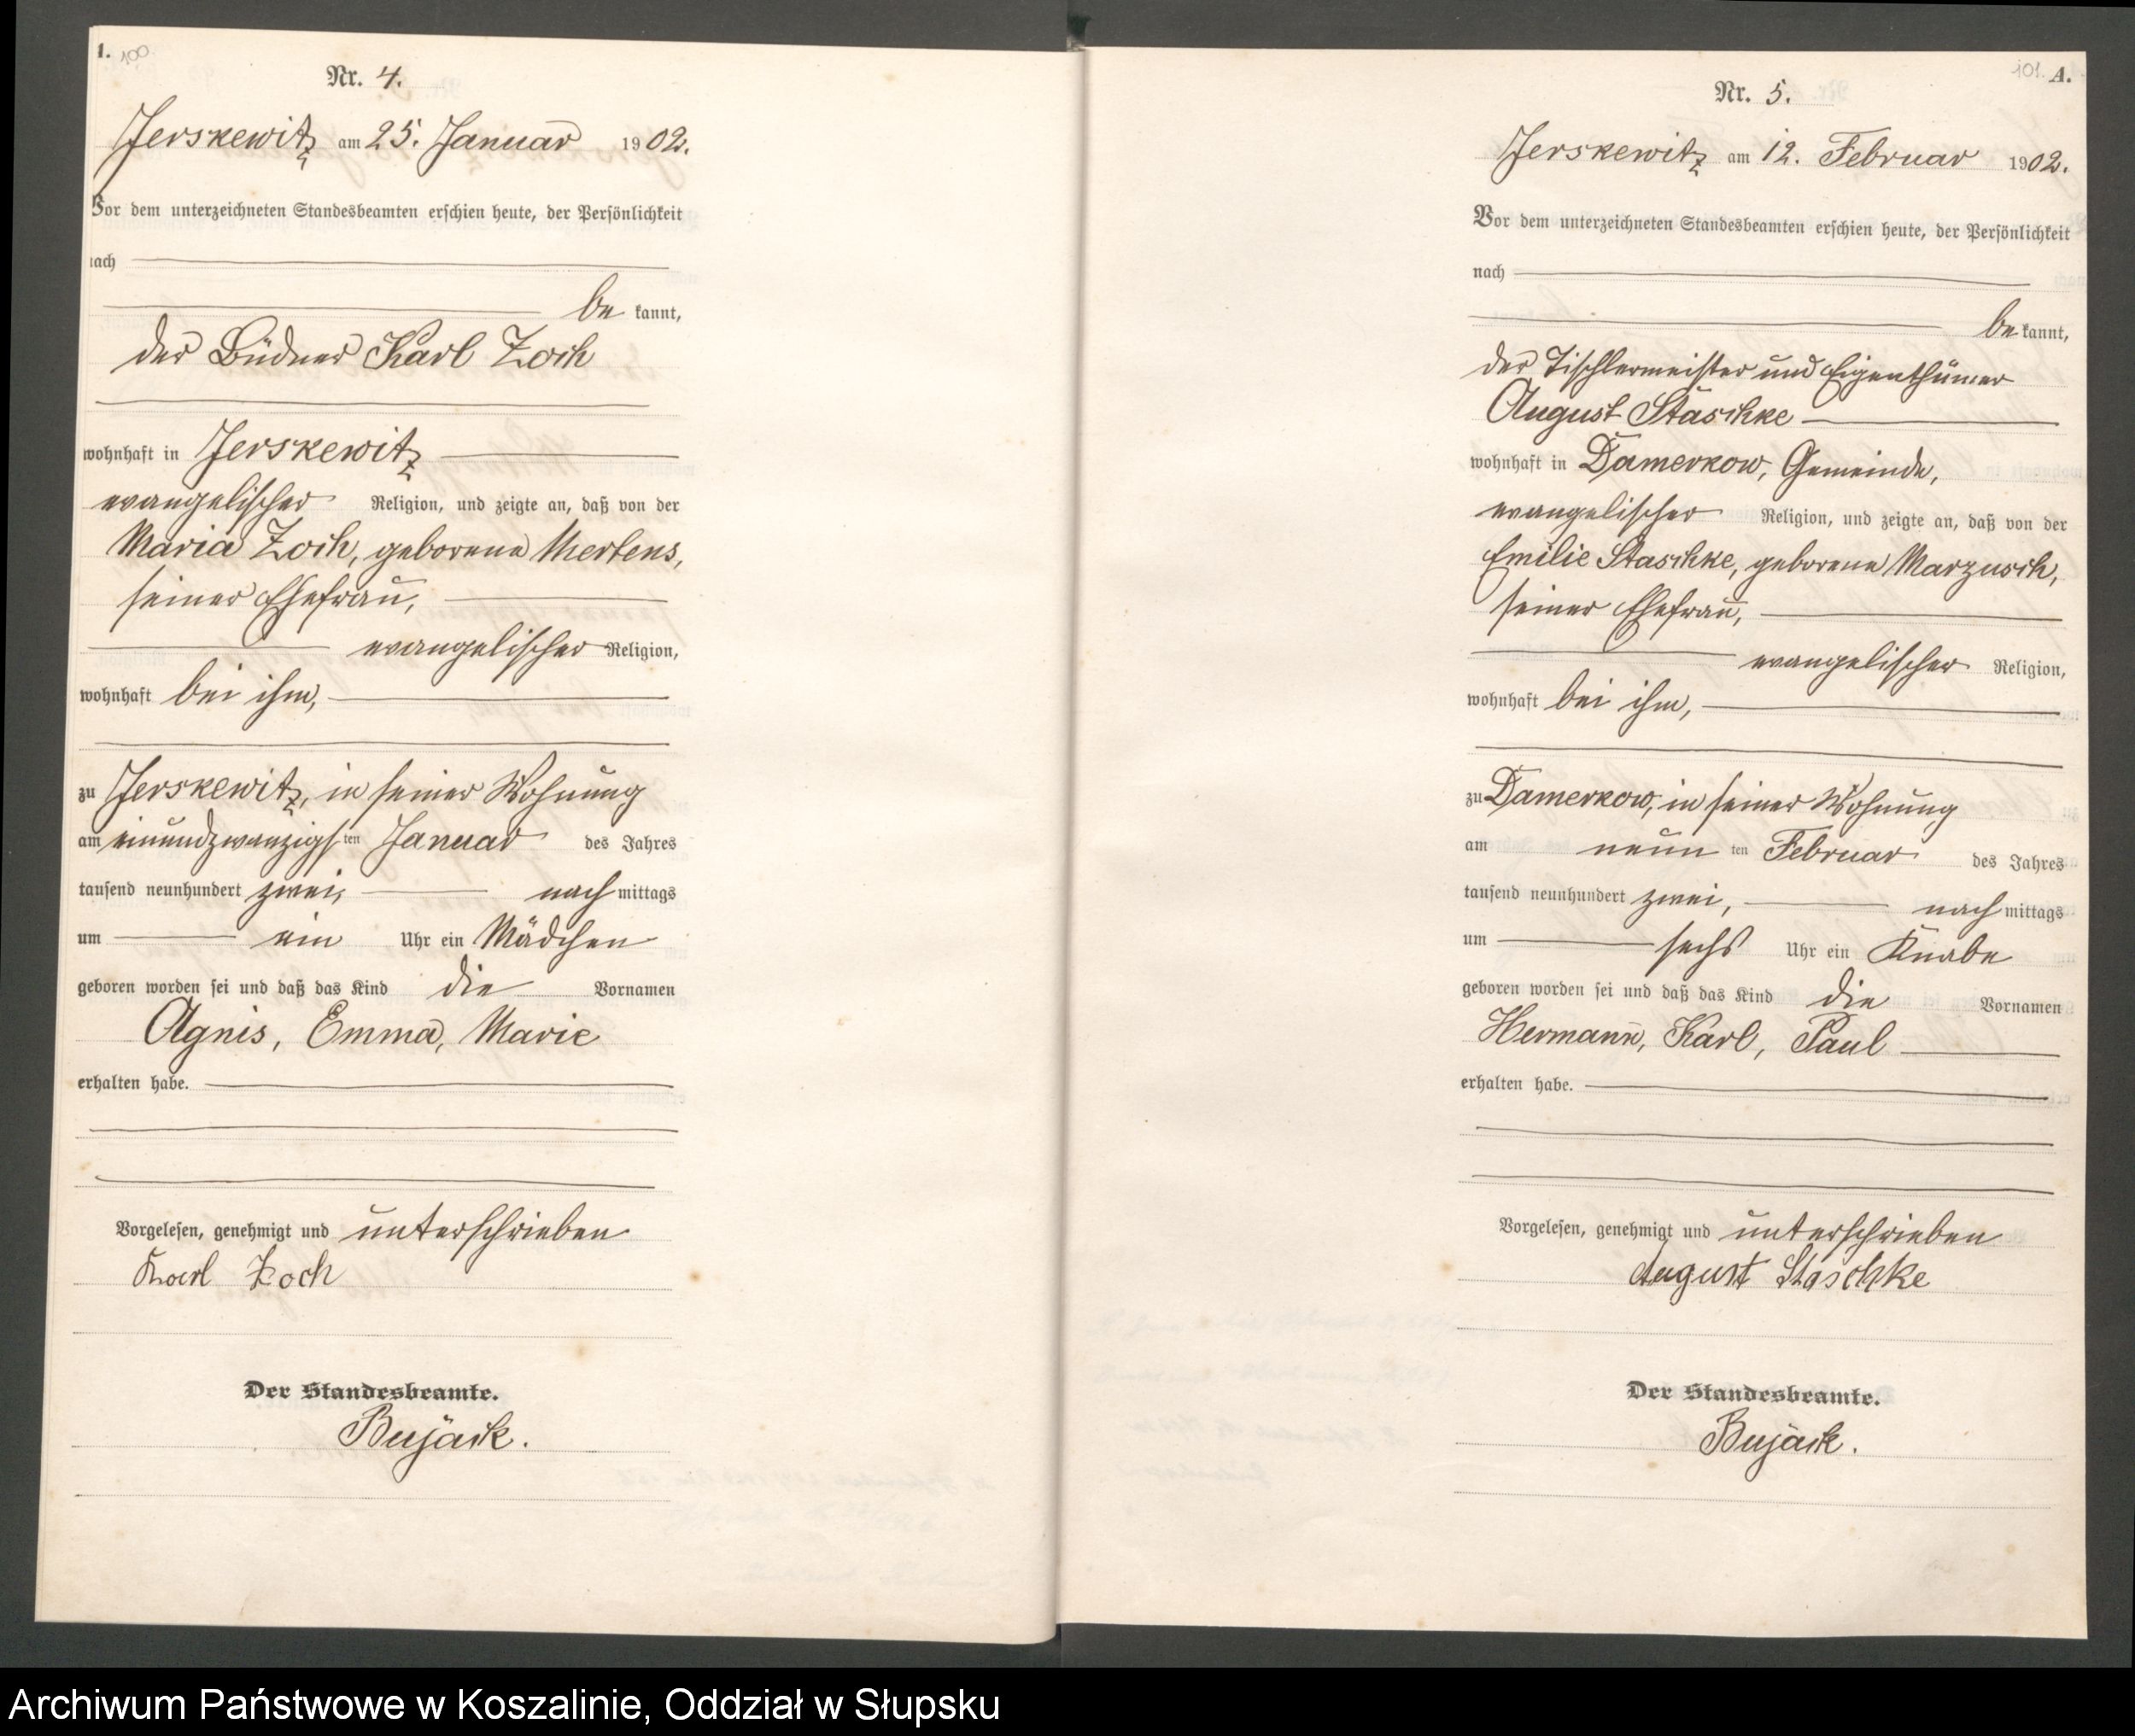 1. 100
Nr. 4.
Jerskewitz am 25. Januar 1902.
Vor dem unterzeichneten Standesbeamten erschien heute, der Persönlichkeit
nach
be kannt,
der Büdner Karl Zoch
wohnhaft in Jerskewitz
evangelischer Religion, und zeigte an, daß von der
Maria Zoch, geborene Mertens,
seiner Ehefrau,
evangelischer Religion,
wohnhaft bei ihm,
zu Jerskewitz, in seiner Wohnung
am einundzwanzigsten Januar des Jahres
tausend neunhundert zwei, nach mittags
um ein Uhr ein Mädchen
geboren worden sei und daß das Kind die Vornamen
Agnis, Emma, Marie
erhalten habe.
Vorgelesen, genehmigt und unterschrieben
Karl Zoch
Der Standesbeamte.
Bujack.
101. A.
Nr. 5.
Jerskewitz am 12. Februar 1902.
Vor dem unterzeichneten Standesbeamten erschien heute, der Persönlichkeit
nach
be kannt,
der Tischlermeister und Eigenthümer
August Staschke
wohnhaft in Damerkow, Gemeinde,
evangelischer Religion, und zeigte an, daß von der
Emilie Staschke, geborene Marzusch,
seiner Ehefrau,
evangelischer Religion,
wohnhaft bei ihm,
zu Damerkow, in seiner Wohnung
am neun ten Februar des Jahres
tausend neunhundert zwei, nach mittags
um sechs Uhr ein Knabe
geboren worden sei und daß das Kind die Vornamen
Hermann, Karl, Paul
erhalten habe.
Vorgelesen, genehmigt und unterschrieben
August Staschke
Der Standesbeamte.
Bujack.
Archiwum Państwowe w Koszalinie, Oddział w Słupsku